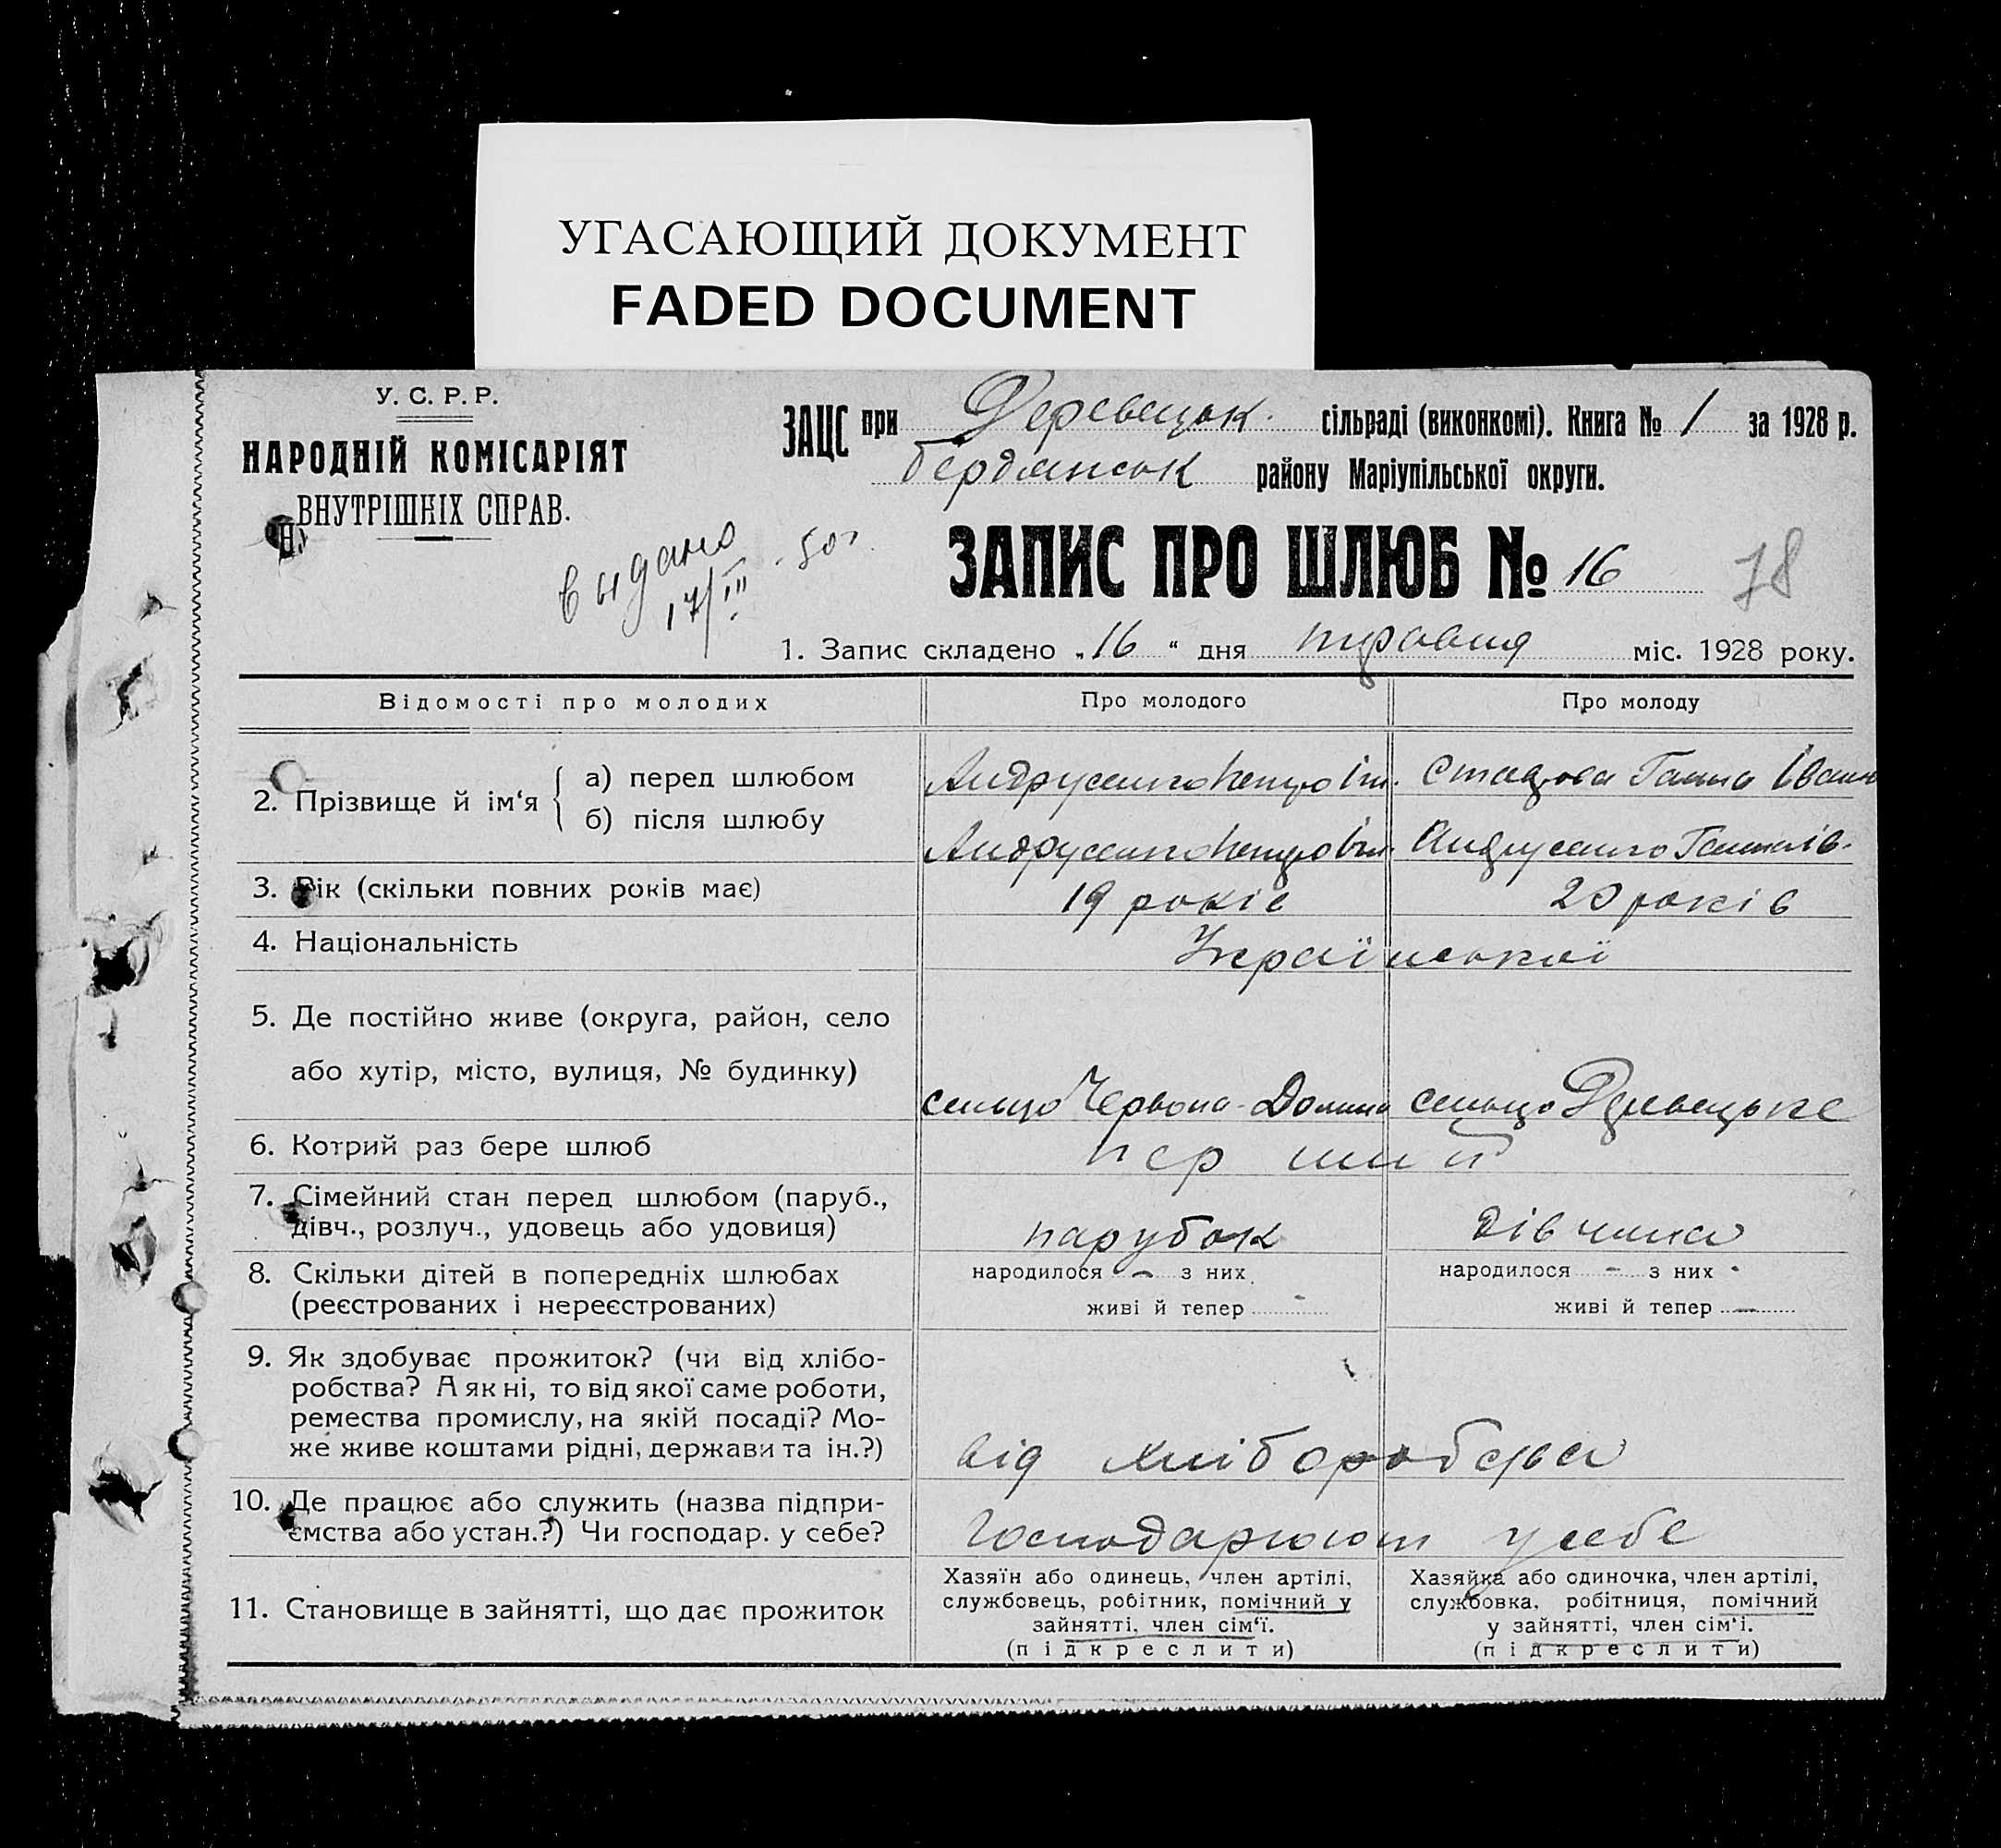 УГАСАЮЩИЙ ДОКУМЕНТ
FADED DOCUMENT
У. С. Р. Р.
НАРОДНІЙ КОМІСАРІЯТ
ВНУТРІШНІХ СПРАВ.
ЗАЦС при Деревецьк. сільраді (виконкомі). Книга № 1 за 1928 р.
Бердянськ району Маріупільської округи.
выдано
17/III 50г.
ЗАПИС ПРО ШЛЮБ № 16
78
1. Запис складено „16“ дня травня міс. 1928 року.
Відомості про молодих Про молодого Про молоду
2. Прізвище й ім‘я
а) перед шлюбом Андрусенко Петро Ів. Ганна Іван
б) після шлюбу Андрусенко Петро Ів. Андрусенко Ганна Ів.
3. Рік (скільки повних років має) 19 років 20 років
4. Національність Української
5. Де постійно живе (округа, район, село
або хутір, місто, вулиця, № будинку) сельцо Червона-Долина сельцо Деревецьке
6. Котрий раз бере шлюб перший
7. Сімейний стан перед шлюбом (паруб.,
дівч., розлуч., удовець або удовиця) парубок дівчина
8. Скільки дітей в попередніх шлюбах народилося - з них народилося - з них
(реєстрованих і нереєстрованих) живі й тепер - живі й тепер -
9. Як здобуває прожиток? (чи від хлібо-
робства? А як ні, то від якої саме роботи,
ремества промислу, на якій посаді? Мо-
же живе коштами рідні, держави та ін.?) від хліборобства
10. Де працює або служить (назва підпри-
ємства або устан.?) Чи господар. у себе? господарюют у себе
11. Становище в зайнятті, що дає прожиток
Хазяїн або одинець, член артілі,
службовець, робітник, помічний у
зайнятті, член сім‘ї.
(підкреслити)
Хазяйка або одиночка, член артілі,
службовка, робітниця, помічний
у зайнятті, член сім‘ї.
(підкреслити)